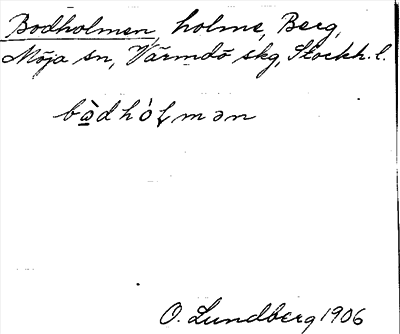 Bodholmen, holme, Berg,
Möja sn, Värmdö skg, Stockh. l.
bòdhólmən
O. Lundberg 1906